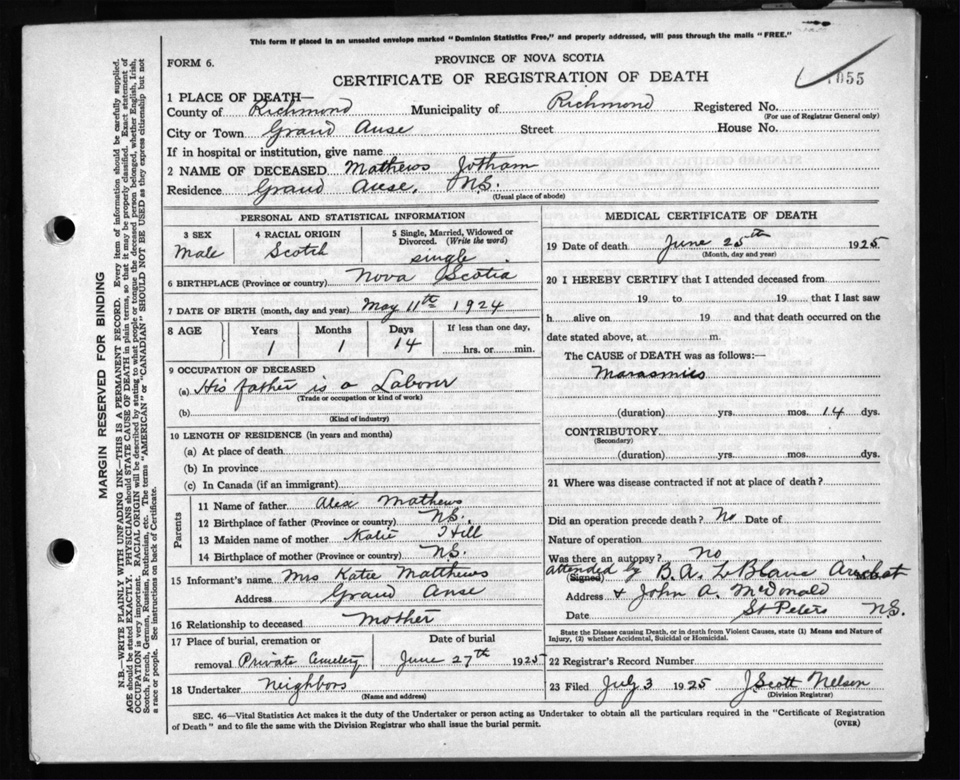 This form if placed in an unsealed envelope marked "Dominion Statistics Free," and properly addressed, will pass through the mails "FREE."
FORM 6.
PROVINCE OF NOVA SCOTIA
CERTIFICATE OF REGISTRATION OF DEATH
1 PLACE OF DEATH—
County of Richmond Municipality of Richmond Registered No.
(For use of Registrar General only)
City or Town Grand Anse Street House No.
If in hospital or institution, give name
2 NAME OF DECEASED Mathews Jotham
Residence Grand Anse, N.S.
(Usual place of abode)
PERSONAL AND STATISTICAL INFORMATION
3 SEX
Male
4 RACIAL ORIGIN
Scotch
5 Single, Married, Widowed or Divorced. (Write the word)
single
6 BIRTHPLACE (Province or country) Nova Scotia
7 DATE OF BIRTH (month, day and year) May 11th 1924
8 AGE Years Months Days If less than one day,
1 1 14 hrs. or min.
9 OCCUPATION OF DECEASED
(a) His father is a Laborer
(Trade or occupation or kind of work)
(b)
(Kind of industry)
10 LENGTH OF RESIDENCE (in years and months)
(a) At place of death
(b) In province
(c) In Canada (if an immigrant)
Parents
11 Name of father Alex Mathews
12 Birthplace of father (Province or country) N.S.
13 Maiden name of mother Katie Hill
14 Birthplace of mother (Province or country) N.S.
15 Informant's name Mrs Katie Matthews
Address Grand Anse
16 Relationship to deceased Mother
17 Place of burial, cremation or
removal Private Cemetery
Date of burial
June 27th 1925
18 Undertaker Neighbors
(Name and address)
MEDICAL CERTIFICATE OF DEATH
19 Date of death June 25th 1925
(Month, day and year)
20 I HEREBY CERTIFY that I attended deceased from
19 to 19 that I last saw
h alive on 19 and that death occurred on the
date stated above, at m.
The CAUSE of DEATH was as follows:—
Marasmus
(duration) yrs. mos. 14 dys.
CONTRIBUTORY
(Secondary)
(duration) yrs. mos. dys.
21 Where was disease contracted if not at place of death?
Did an operation precede death? No Date of
Nature of operation
Was there an autopsy? No
attended by B.A. LeBlanc Arichat
(Signed)
Address & John A. McDonald
Date St Peters N.S.
State the Disease causing Death, or in death from Violent Causes, state (1) Means and Nature of
Injury, (2) whether Accidental, Suicidal or Homicidal.
22 Registrar's Record Number
23 Filed July 3 1925 J Scott Nelson
(Division Registrar)
SEC. 46—Vital Statistics Act makes it the duty of the Undertaker or person acting as Undertaker to obtain all the particulars required in the "Certificate of Registration
of Death" and to file the same with the Division Registrar who shall issue the burial permit.
(OVER)
MARGIN RESERVED FOR BINDING
N.B.—WRITE PLAINLY WITH UNFADING INK—THIS IS A PERMANENT RECORD. Every item of information should be carefully supplied.
AGE should be stated EXACTLY. PHYSICIANS should STATE CAUSE OF DEATH in plain terms, so that it may be properly classified. Exact statement of
OCCUPATION is very important. RACIAL ORIGIN will be described by stating to what people or tongue the deceased person belonged, whether English, Irish,
Scotch, French, German, Russian, Ruthenian, etc. The terms "AMERICAN" or "CANADIAN" SHOULD NOT BE USED as they express citizenship but not
a race or people. See instructions on back of Certificate.